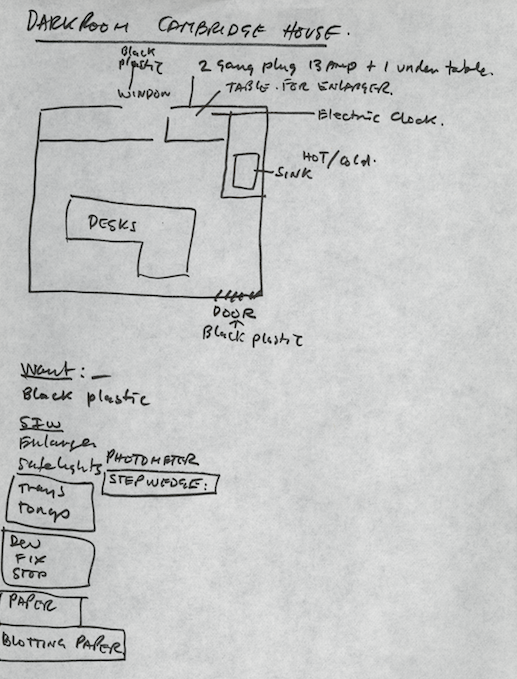 DARKROOM CAMBRIDGE HOUSE.
Black
plastic
2 gang plug 13 Amp + 1 under table.
WINDOW
TABLE FOR ENLARGER.
Electric Clock.
HOT/Cold.
SINK
DESKS
DOOR
Black plastic
Want: –
Black plastic
Enlarger
Safelights
PHOTOMETER
STEPWEDGE:
Trays
Tongs
DEV
FIX
STOP
PAPER
BLOTTING PAPER